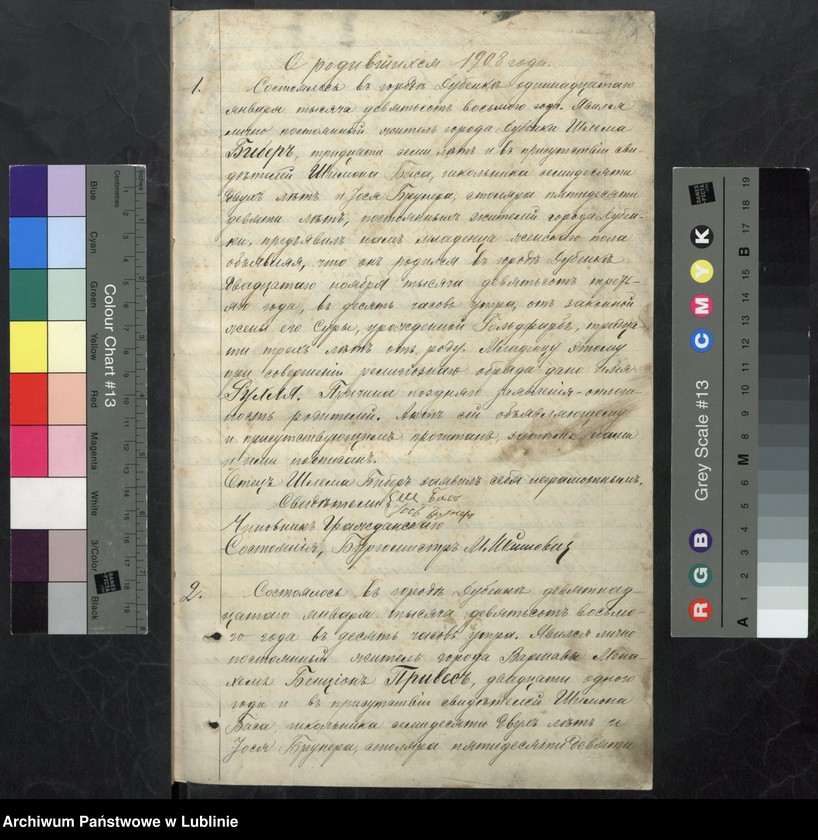 О родившихся 1908 года.
1.
Состоялось въ городѣ Дубенкѣ одиннадцатаго
января тысяча девятьсотъ восьмого года. Явился
лично постоянный житель города Дубенки Шлема
Биберъ, тридцати семи лѣтъ и въ присутствіи сви-
дѣтелей Шимона Баса, школьника семидесяти
двухъ лѣтъ и Іося Брунера, столяра пятидесяти
девяти лѣтъ, постоянныхъ жителей города Дубен-
ки, предъявилъ намъ младенца женскаго пола
объявляя, что онъ родился въ городѣ Дубенкѣ
двадцатаго ноября тысяча девятьсотъ
года, въ десять часовъ утра, отъ законной
жены его Суры, урожденной Гольдфарбъ, тридца-
ти трехъ лѣтъ отъ роду. Младенцу этому
при совершеніи религіознаго обряда дано имя
Причина поздняго заявленія-
родителей. Актъ сей объявляющему
и присутствующимъ прочитанъ,
и ими подписанъ.
Отецъ Шлема Биберъ заявилъ себя неграмотнымъ.
Свидѣтели Ш Басъ
Брунеръ
Чиновникъ Гражданскаго
Состоянія, Бургомистръ
2.
Состоялось въ городѣ Дубенкѣ девятнад-
цатаго января тысяча девятьсотъ восьмо-
го года въ десять часовъ утра. Явился лично
постоянный житель города Варшавы Мена-
хемъ Бенціонъ Привесъ, двадцати одного
года и въ присутствіи свидѣтелей Шимона
Баса, школьника семидесяти двухъ лѣтъ и
Іося Брунера, столяра пятидесяти девяти
Colour Chart #13
Blue
Cyan
Green
Yellow
Red
Magenta
White
3/Color
Black
Centimetres
Inches
Grey Scale #13
R G B
C M Y K
A 1 2 3 4 5 6 M 8 9 10 11 12 13 14 15 B 17 18 19
Archiwum Państwowe w Lublinie